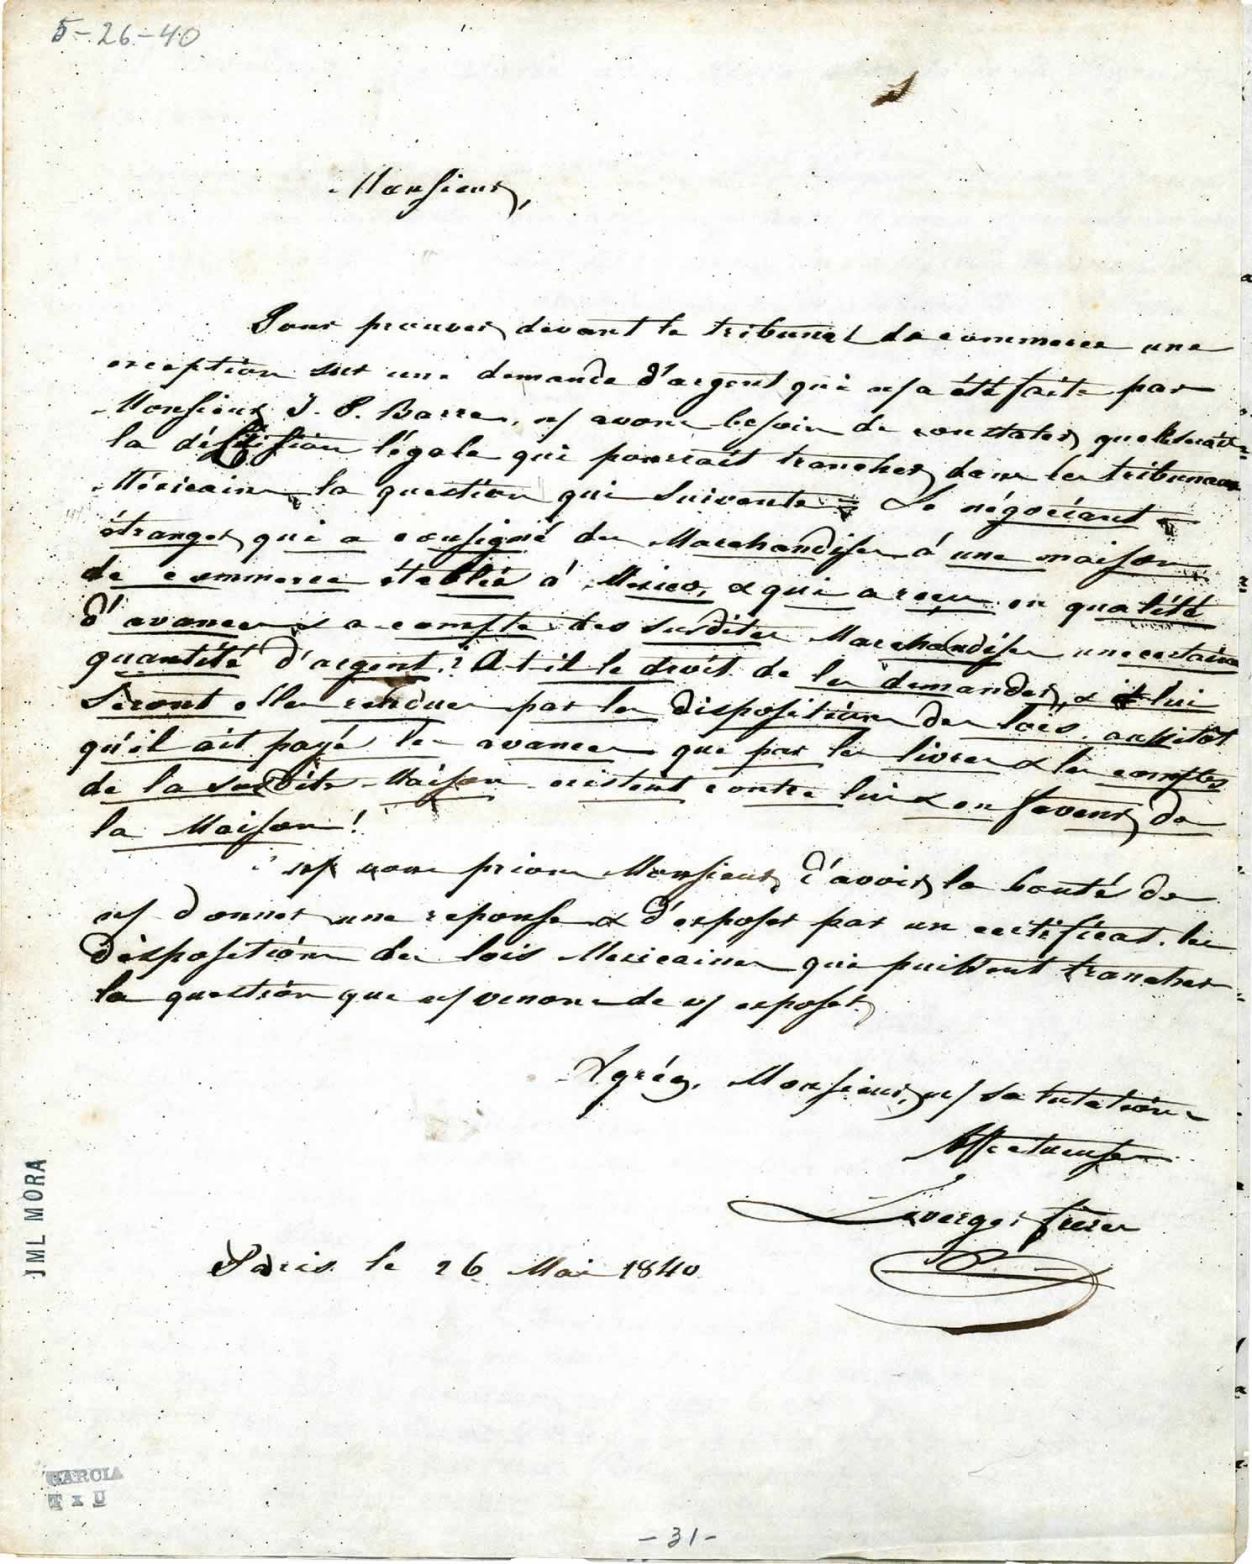 5-26-40
Monsieur,
Pour prouver devant le tribunal de commerce une
exception sur une demande d'argent qui ns/ a été faite par
Monsieur J. P. Barre, ns/ avons besoin de constater, quelle serait
la décision légale qui pourrait trancher dans les tribunaux
Méxicains la question qui suivante = Le négociant
étranger, qui a consigné des Marchandises à une maison
de commerce établie à Mexico, & qui a reçu en qualité
d'avances & a compte des susdites Marchandises une certaine
quantité d'argent? A-t-il le droit de les demander, & lui
seront elles rendues par les dispositions des lois, aussitôt
qu'il ait payé les avances que par les livres & les comptes
de la susdite Maison existent contre lui & en faveur de
la Maison!
ns/ vous prions Monsieur, d'avoir la bonté de
ns/ donner une reponse & d'exposer par un certificat les
dispositions des lois Mexicaines qui puissent trancher
la question que ns/ venons de vs/ exposer.
Agréez, Monsieur, ns/ salutations
Affectueuses
Leverger frères
Paris le 26 Mai 1840
JML MORA
GARCIA
T x U
-31-